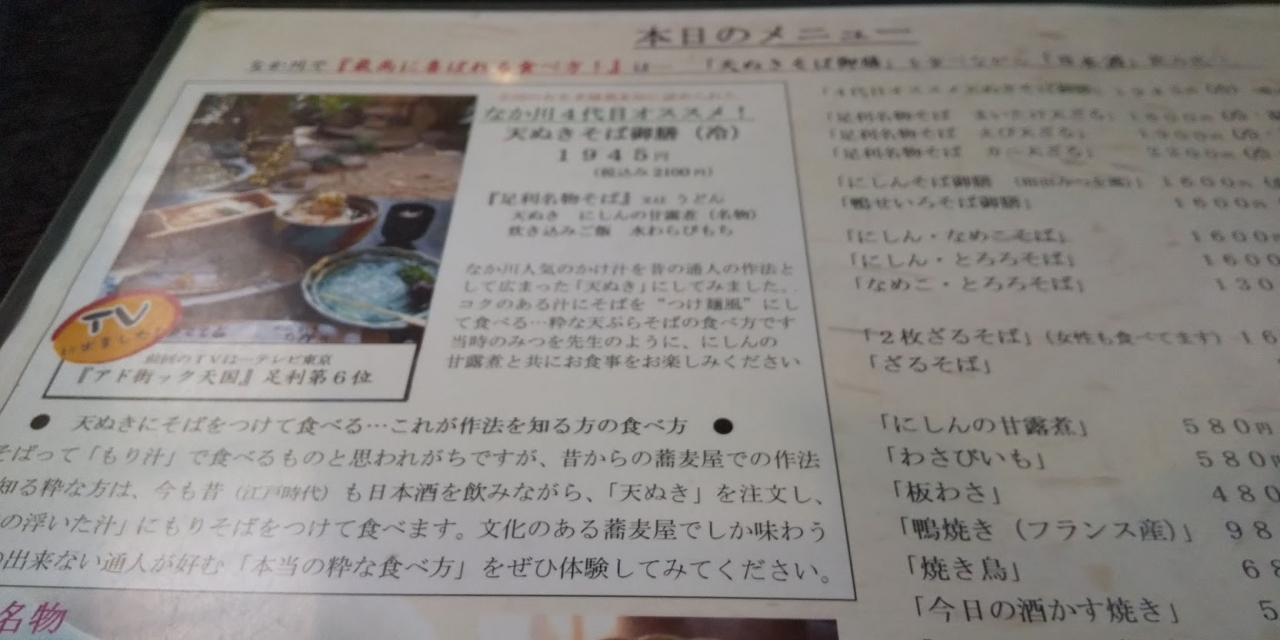 本日のメニュー
なか川で『最高に喜ばれる食べ方！』は…「天ぬきそば御膳」を食べながら「日本酒」
なか川４代目オススメ！
天ぬきそば御膳（冷）
１９４５円
（税込み2100円）
『足利名物そば』又は うどん
天ぬき　にしんの甘露煮（名物）
炊き込みご飯　水わらびもち
なか川人気のかけ汁を昔の通人の作法と
して広まった「天ぬき」にしてみました。
コクのある汁にそばを“つけ麺風”にし
て食べる…粋な天ぷらそばの食べ方です
当時のみつを先生のように、にしんの
甘露煮と共にお食事をお楽しみください
TV
出ました
前回のTVは…テレビ東京
『アド街ック天国』足利第６位
● 天ぬきにそばをつけて食べる…これが作法を知る方の食べ方 ●
そばって「もり汁」で食べるものと思われがちですが、昔からの蕎麦屋での作法
知る粋な方は、今も昔（江戸時代）も日本酒を飲みながら、「天ぬき」を注文し、
の浮いた汁」にもりそばをつけて食べます。文化のある蕎麦屋でしか味わう
出来ない通人が好む「本当の粋な食べ方」をぜひ体験してみてください。
名物
「４代目オススメ天ぬきそば御膳」１９４５円（冷）
「足利名物そば　まいたけ天ざる」
「足利名物そば　えび天ざる」
「足利名物そば　カニ天ざる」
「にしんそば御膳　（相田みつを膳）」１６００円
「鴨せいろそば御膳」１６００
「にしん・なめこそば」１６００
「にしん・とろろそば」１６００
「なめこ・とろろそば」１３０
「２枚ざるそば」（女性も食べてます）
「ざるそば」
「にしんの甘露煮」５８０円
「わさびいも」５８０
「板わさ」４８０
「鴨焼き（フランス産）」９８
「焼き鳥」６８
「今日の酒かす焼き」５